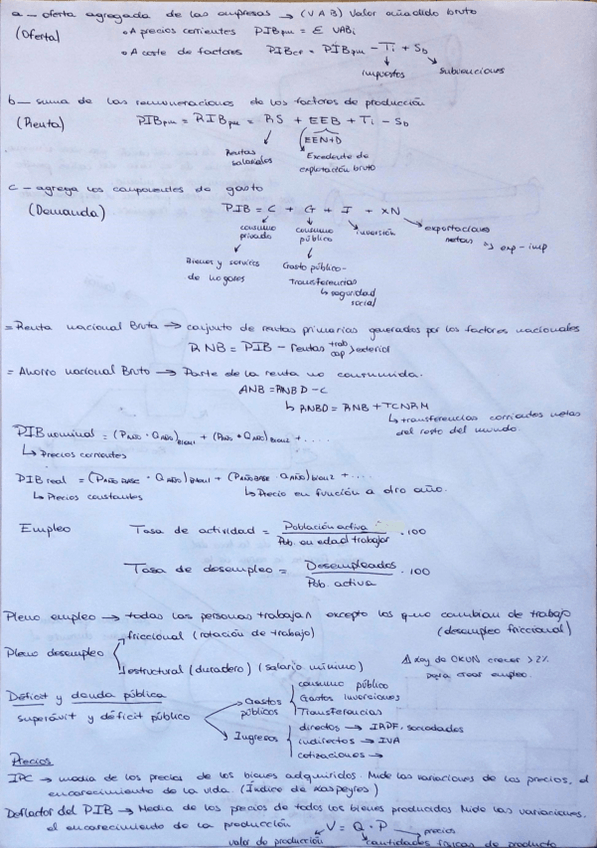 a – oferta agregada de las empresas → (VAB) Valor añadido bruto
(Oferta) • A precios corrientes PIBpm = Σ VABi
• A coste de factores PIBcf = PIBpm - Ti + Sb
impuestos subvenciones
b – suma de las remuneraciones de los factores de producción
(Renta) PIBpm = RIBpm = RS + EEB + Ti - Sb
(EEN+D)
Rentas salariales Excedente de explotación bruto
c – agrega los componentes de gasto
(Demanda) PIB = C + G + I + XN
consumo privado consumo público inversión exportaciones netas → exp - imp
Bienes y servicios de hogares Gasto público - Transferencias
↳ seguridad social
= Renta nacional Bruta → conjunto de rentas primarias generados por los factores nacionales
RNB = PIB - rentas trab cap > exterior
= Ahorro nacional Bruto → Parte de la renta no consumida.
ANB = RNBD - C
↳ RNBD = RNB + TCNRM
↳ transferencias corrientes netas del resto del mundo.
PIB nominal = (PAÑO · QAÑO)BIEN1 + (PAÑO · QAÑO)BIEN2 + ....
↳ Precios corrientes
PIB real = (PAÑO BASE · QAÑO)BIEN1 + (PAÑO BASE · QAÑO)BIEN2 + ...
↳ Precios constantes ↳ Precio en función a otro año.
Empleo Tasa de actividad = Población activa / Pob. en edad trabajar · 100
Tasa de desempleo = Desempleados / Pob. activa · 100
Pleno empleo → todas las personas trabajan excepto los que cambian de trabajo
(desempleo friccional)
Pleno desempleo friccional (rotación de trabajo)
estructural (duradero) (salario mínimo)
Ley de OKUN crecer >2% para crear empleo.
Déficit y deuda pública
superávit y déficit público
Gastos públicos consumo público
Gastos inversiones
Transferencias
Ingresos directos → IRPF, sociedades
indirectos → IVA
cotizaciones →
Precios
IPC → media de los precios de los bienes adquiridos. Mide las variaciones de los precios, el
encarecimiento de la vida. (Índice de Laspeyres)
Deflactor del PIB → Media de los precios de todos los bienes producidos Mide las variaciones,
el encarecimiento de la producción V = Q · P → precios
valor de producción cantidades físicas de producto